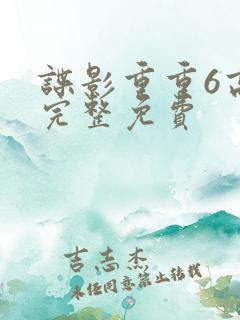 谍影重重6高
完整免费
吉志杰
未经同意禁止转载